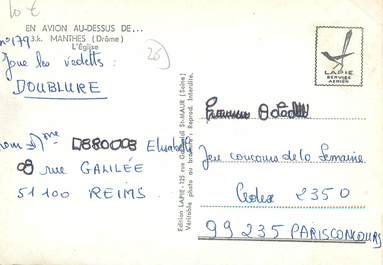 10 €
EN AVION AU-DESSUS DE...
3.k. MANTHES (Drôme)
L'Église
n°179
26
Joue les vedettes :
DOUBLURE
Mme Elisabeth
8 rue GALILÉE
51100 REIMS.
Edition LAPIE-125 rue St-MAUR (Seine)
Véritable photo au bromure - Reprod. Interdite.
LAPIE
SERVICE
AÉRIEN
Jeu concours de la Semaine
Cedex 2350
99 235 PARISCONCOURS